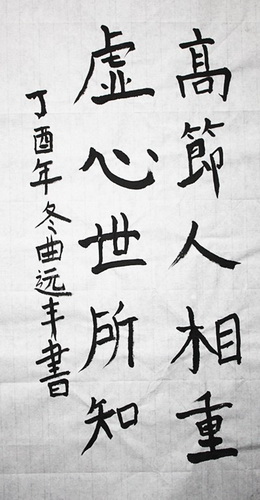 高節人相重
虚心世所知
丁酉年冬曲远丰書